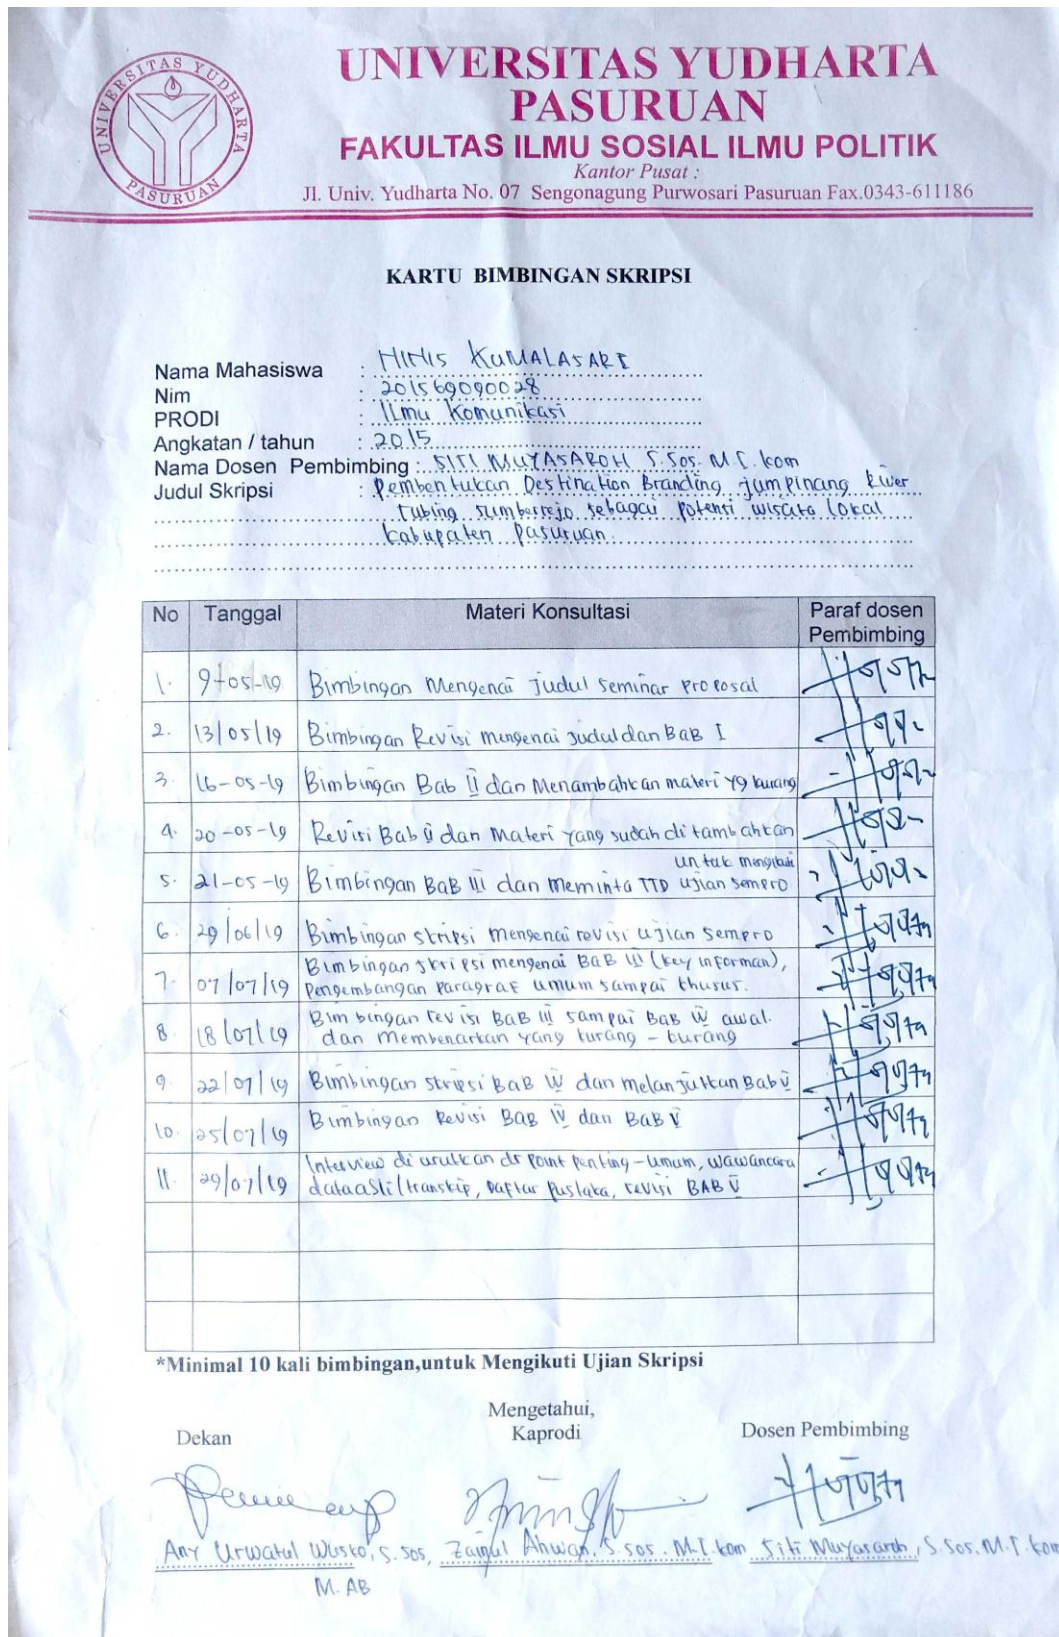 UNIVERSITAS YUDHARTA
PASURUAN
UNIVERSITAS YUDHARTA
PASURUAN
FAKULTAS ILMU SOSIAL ILMU POLITIK
Kantor Pusat :
Jl. Univ. Yudharta No. 07 Sengonagung Purwosari Pasuruan Fax.0343-611186
KARTU BIMBINGAN SKRIPSI
Nama Mahasiswa : NINIS KUMALASARI
Nim : 201569090028
PRODI : Ilmu Komunikasi
Angkatan / tahun : 2015
Nama Dosen Pembimbing : SITI MUYASAROH S.Sos. M.I.kom
Judul Skripsi : Pembentukan Destination Branding jumpinang River
tubing sumberrejo sebagai potensi wisata lokal
kabupaten pasuruan
No Tanggal Materi Konsultasi Paraf dosen
Pembimbing
1. 9-05-19 Bimbingan Mengenai judul seminar proposal
2. 13/05/19 Bimbingan Revisi mengenai judul dan BaB I
3. 16-05-19 Bimbingan Bab II dan Menambahkan materi yg kurang
4. 20-05-19 Revisi Bab II dan Materi yang sudah di tambahkan
untuk mengikuti
5. 21-05-19 Bimbingan BaB III dan meminta TTD ujian sempro
6. 29/06/19 Bimbingan skripsi mengenai revisi ujian sempro
Bimbingan skripsi mengenai BaB IV (key informan),
7. 07/07/19 Pengembangan paragraf umum sampai khusus.
Bimbingan revisi BaB III sampai BaB IV awal.
8. 18/07/19 dan membenarkan yang kurang - kurang
9. 22/07/19 Bimbingan skripsi BaB IV dan melanjutkan Bab V
10. 25/07/19 Bimbingan Revisi BaB IV dan BaB V
Interview di urutkan dr point penting - umum, wawancara
11. 29/07/19 data asli/transkip, Daftar pustaka, revisi BAB V
*Minimal 10 kali bimbingan,untuk Mengikuti Ujian Skripsi
Mengetahui,
Dekan Kaprodi Dosen Pembimbing
Any Urwatul Wusko, S.Sos, Zainul Ahwan, S.Sos. M.I.kom Siti Muyasaroh, S.Sos. M.I.kom
M.AB